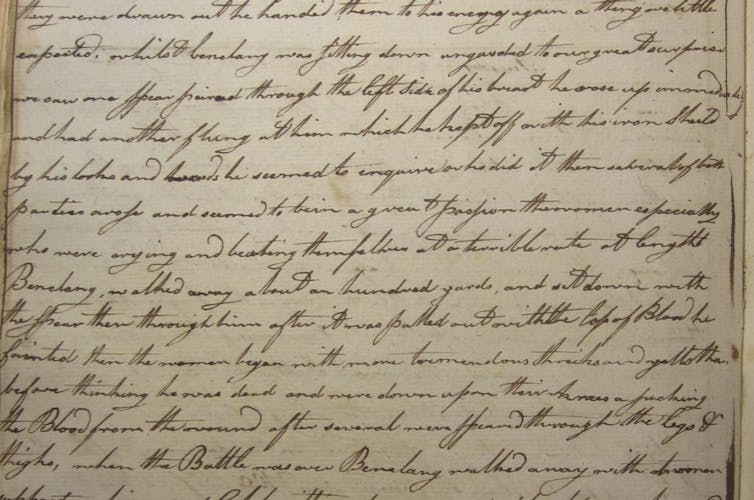 they were drawn out he handed them to his enemy again a thing we little
expected. whilst benelang was sitting down unguarded to our great surprise
we saw one spear peirced through the left side of his breast he arose up immediately
and had another flung at him which he kept off with his iron Sheild
by his looks and he seemed to enquire who did it then several of both
parties arose and seemed to be in a great passion the women especially
who were crying and beating themselves at a terrible rate at length
Benelang, walked away about an hundred yards, and set down with
the spear then through him after it was pulled out with the loss of Blood he
fainted then the women began with more tremendous shrieks and yells than
before thinking he was dead and were down upon their knees a sucking
the Blood from the wound after several were speared through the legs &
thighs, when the Battle was over Benelang walked away with a woman